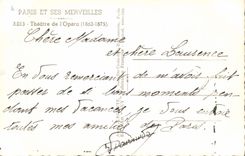 PARIS ET SES MERVEILLES
5353 - Théâtre de l'Opéra (1862-1875)
Chère Madame
et chère Laurence
En vous remerciant de m'avoir fait
passer de si bons moments pen-
dant mes vacances je vous envoie
toutes mes amitiés de Paris.